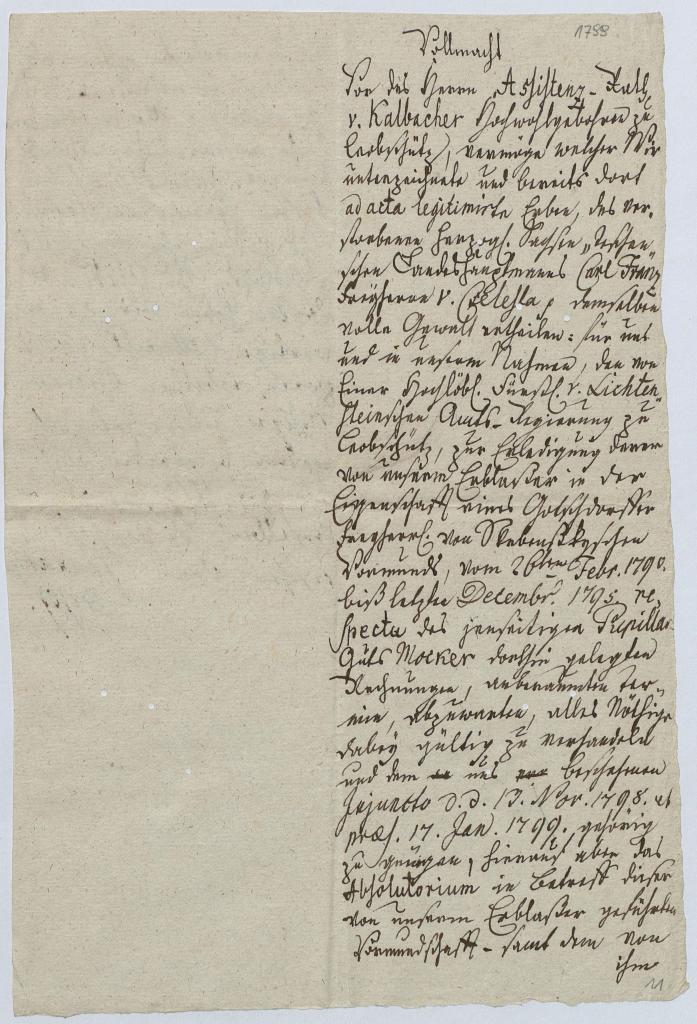 1799
Vollmacht
Vor des Herrn Assistenz-Rath
v. Kalbacher Hochwohlgebohren zu
Leobschütz, vermöge welcher Wir
unterzeichnete und bereits dort
ad acta legitimirte Erben, des ver-
storbenen Herzogl. Sachsen „Teschen
schen Landeshauptmanns Carl Franz
Freyherrn v. demselben
volle Gewalt ertheilen: für uns
und in unserem Nahmen, den von
Einer Hochlöbl. Fürstl. v. Lichten
steinschen Amts-Regierung zu
Leobschütz, zur Erledigung derer
von unserem Erblaßer in der
Eigenschafft eines Gotschdorffer
Freyherrl. von Skrbenskyschen
Vormunds, vom 26ten Febr. 1790.
biß letzten Decembr. 1795. re-
spectu des jenseitigen Pupillar
Guts Mocker dorthin gelegten
Rechnungen, anberaumten Ter-
min, abzuwarten, alles Nöthige
dabey gültig zu verhandeln
und dem uns beschehenen
Injuncto d. d. 13. Nov. 1798. et
præs. 17. Jan. 1799. gehörig
zu genügen, hierauf aber das
Absolutorium in Betreff dieser
von unserem Erblaßer geführten
Vormundschafft - samt dem von
ihm
11